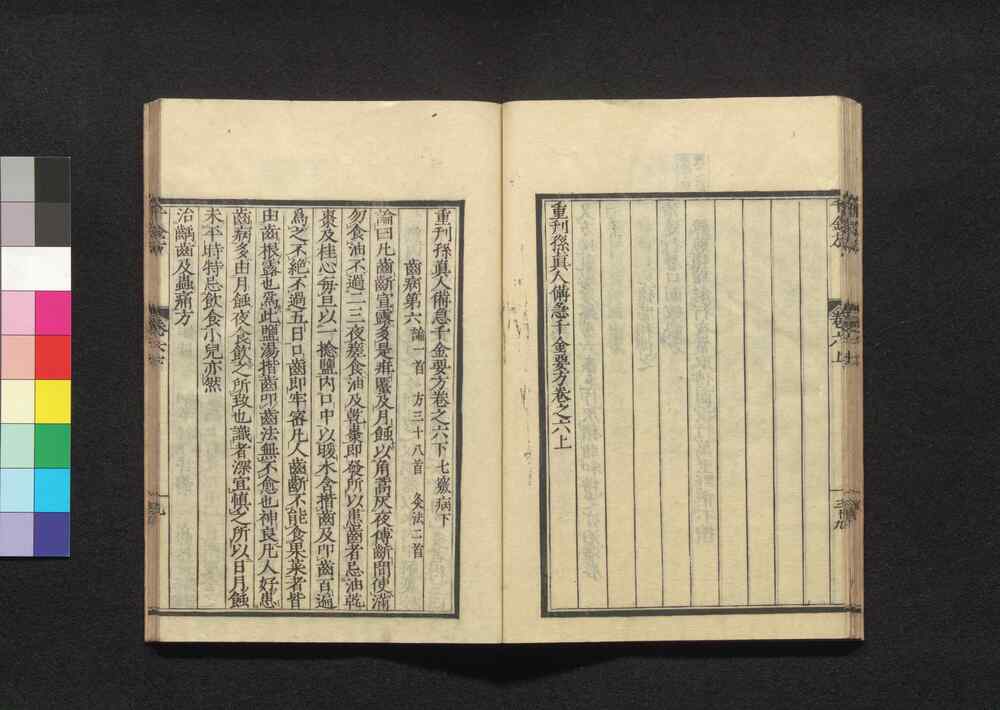 重刊孫眞人備急千金要方卷之六上
重刊孫眞人備急千金要方卷之六下 七竅病下
齒病第六 論一首 方三十八首 灸法二首
論曰凡齒齗宣露多是疳䘌及月蝕以角蒿灰夜傅齗間使滿
勿食油不過二三夜差食油及乾棗即發所以患齒者忌油乾
棗及桂心每旦以一捻鹽内口中以暖水含揩齒及叩齒百遍
爲之不絶不過五日口齒即牢密凡人齒齗不能食果菜者皆
由齒根露也爲此鹽湯揩齒叩齒法無不愈也神良凡人好患
齒病多由月蝕夜食飲之所致也識者深宜愼之所以日月蝕
未平時特忌飲食小兒亦然
治齲齒及蟲痛方